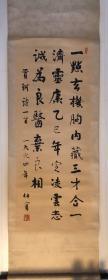 一點玄機胸內藏三才合一
濟靈乙巳年定凌雲志
誠為良醫棄良相
詩一首 一九六四年